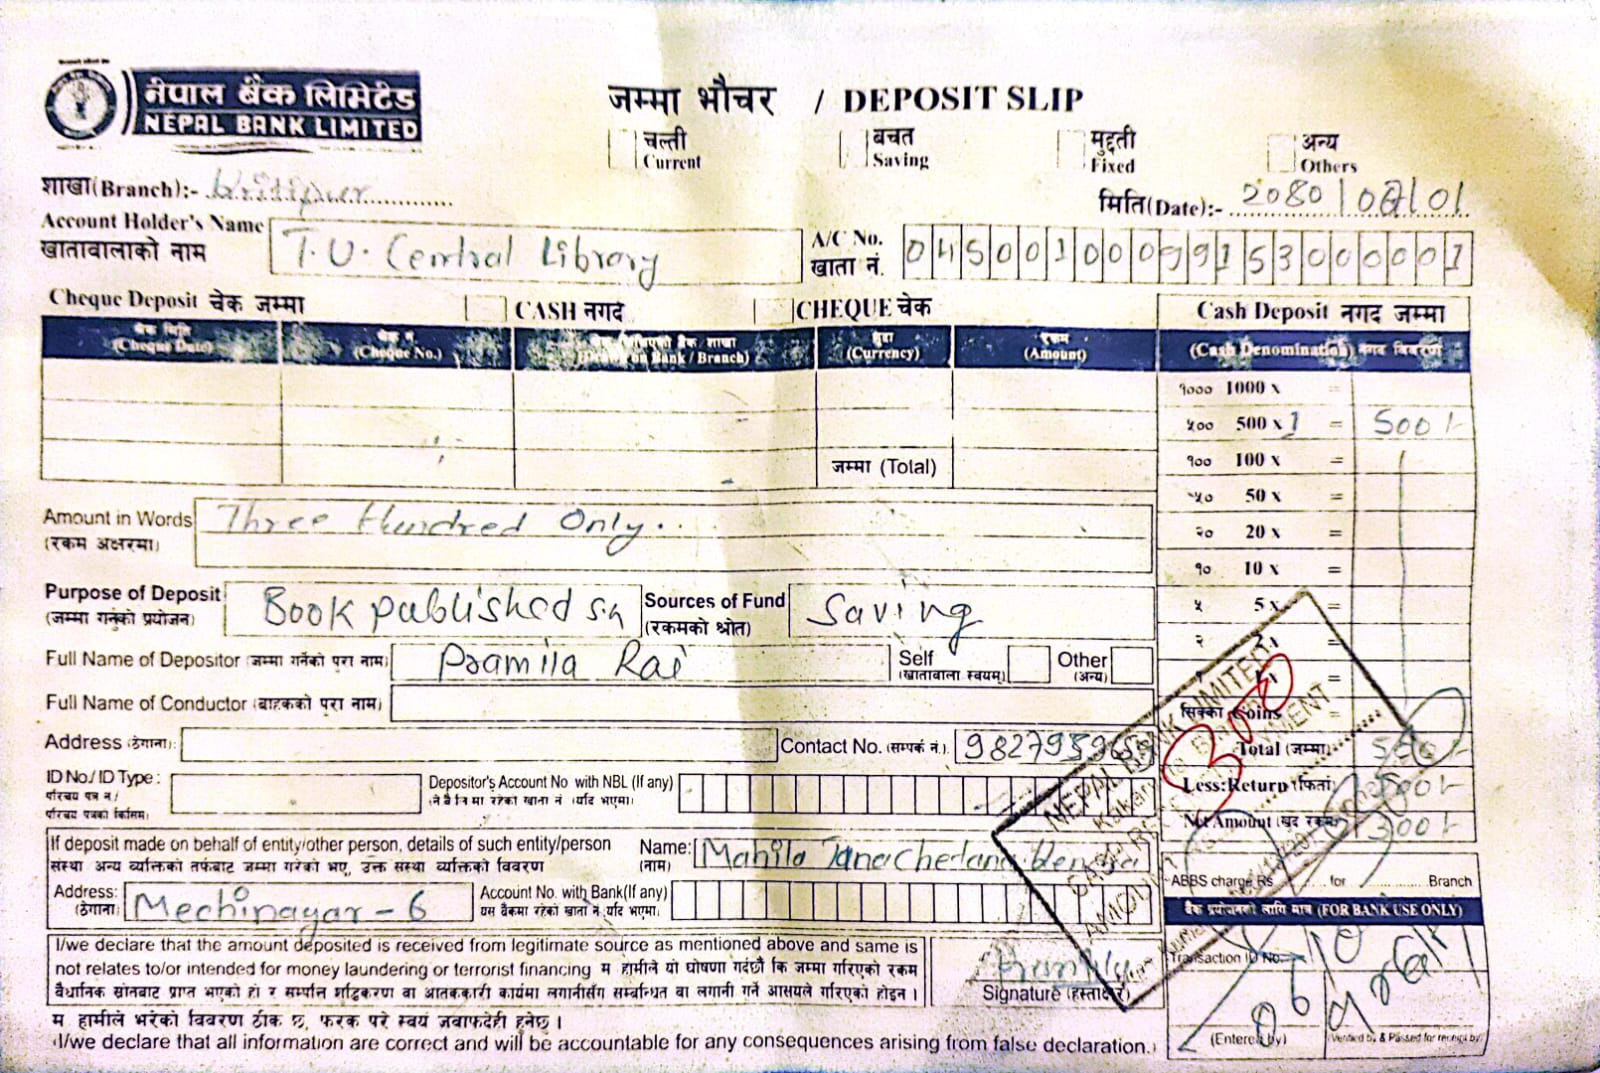 नेपाल बैंक लिमिटेड
NEPAL BANK LIMITED
जम्मा भौचर / DEPOSIT SLIP
चल्ती Current
बचत Saving
मुद्दती Fixed
अन्य Others
शाखा(Branch):- Kritipur
मिति(Date):- 2080/08/01
Account Holder's Name T.U. Central Library
खातावालाको नाम
A/C No. 04500100099153000001
खाता नं.
Cheque Deposit चेक जम्मा CASH नगद CHEQUE चेक
Cash Deposit नगद जम्मा
(Cheque Date)
(Cheque No.)
(Drawn on Bank / Branch)
(Currency)
रकम (Amount)
(Cash Denomination) नगद विवरण
१००० 1000 x =
५०० 500 x 1 = 500/-
१०० 100 x =
जम्मा (Total)
५० 50 x =
Amount in Words Three Hundred Only.
(रकम अक्षरमा)
२० 20 x =
१० 10 x =
Purpose of Deposit Book published
(जम्मा गर्नुको प्रयोजन)
Sources of Fund Saving
(रकमको श्रोत)
५ 5 x
२ =
Full Name of Depositor (जम्मा गर्नेको पूरा नाम) Pramila Rai
Self (खातावाला स्वयम्)
Other (अन्य)
Full Name of Conductor (बाहकको पूरा नाम)
सिक्का Coins
Address (ठेगाना):
Contact No. (सम्पर्क नं.)
Total (जम्मा)
300
ID No./ ID Type :
परिचय पत्र नं/
परिचय पत्रको किसिम:
Depositor's Account No with NBL (If any)
Less: Return (फिर्ता)
Net Amount (खुद रकम) 300/-
If deposit made on behalf of entity/other person, details of such entity/person
संस्था अन्य व्यक्तिको तर्फबाट जम्मा गरेको भए, उक्त संस्था व्यक्तिको विवरण
Name: Mahila
(नाम)
ABBS charge Rs for Branch
Address: Mechinagar - 6
(ठेगाना)
Account No. with Bank(If any)
यस बैंकमा रहेको खाता नं यदि भएमा
NEPAL BANK LIMITED
बैंक प्रयोजनको लागि मात्र (FOR BANK USE ONLY)
I/we declare that the amount deposited is received from legitimate source as mentioned above and same is
not relates to/or intended for money laundering or terrorist financing म हामीले यो घोषणा गर्दछौं कि जम्मा गरिएको रकम
वैधानिक स्रोतबाट प्राप्त भएको हो र सम्पत्ति शुद्धिकरण वा आतंककारी कार्यमा लगानीसँग सम्बन्धित वा लगानी गर्ने आसयले गरिएको होइन ।
Signature (हस्ताक्षर)
Transaction ID No.
म हामीले भरेको विवरण ठीक छ, फरक परे स्वयं जवाफदेही हुनेछु ।
I/we declare that all information are correct and will be accountable for any consequences arising from false declaration.
(Entered by)
(Verified by & Passed for receipt by)